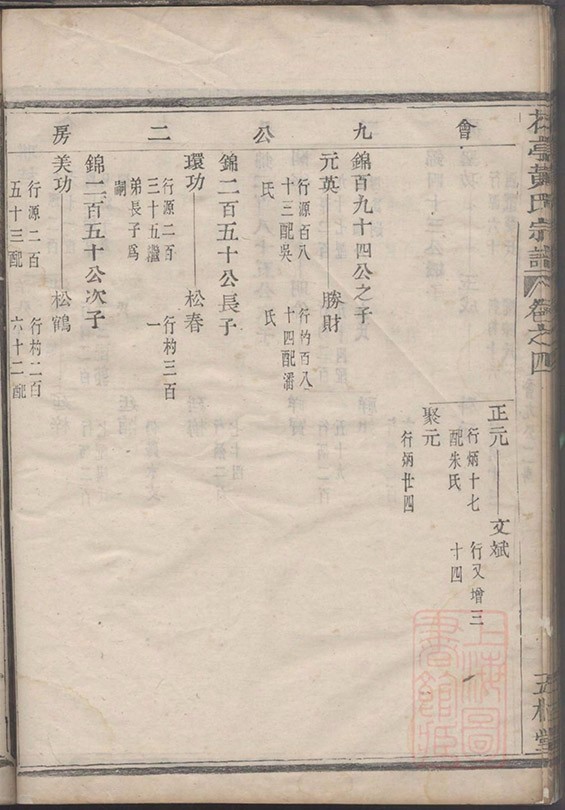 黃氏宗譜
卷之四
會九公二房
正元 文斌
行炳十七 行又增三
配朱氏 十四
聚元
行炳廿四
錦百九十四公之子
元英 勝財
行源百八 行杓百八
十三配吳 十四配潘
氏 氏
錦二百五十公長子
環功 松春
行源二百 行杓三百
三十五繼 一
弟長子爲
嗣
錦二百五十公次子
美功 松鶴
行源二百 行杓二百
五十三配 六十二配
上海圖書館藏